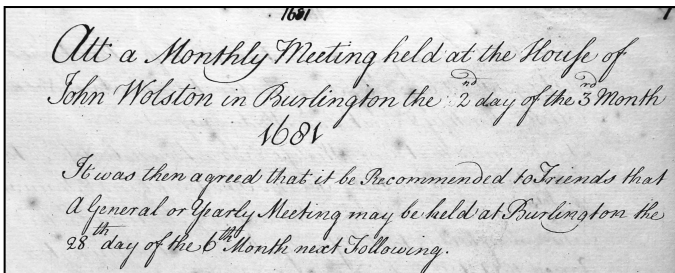 1681
Att a Monthly Meeting held at the House of
John Wolston in Burlington the 2nd day of the 3rd Month
1681
It was then agreed that it be Recommended to Friends that
A General or Yearly Meeting may be held at Burlington the
28th day of the 6th Month next Following.